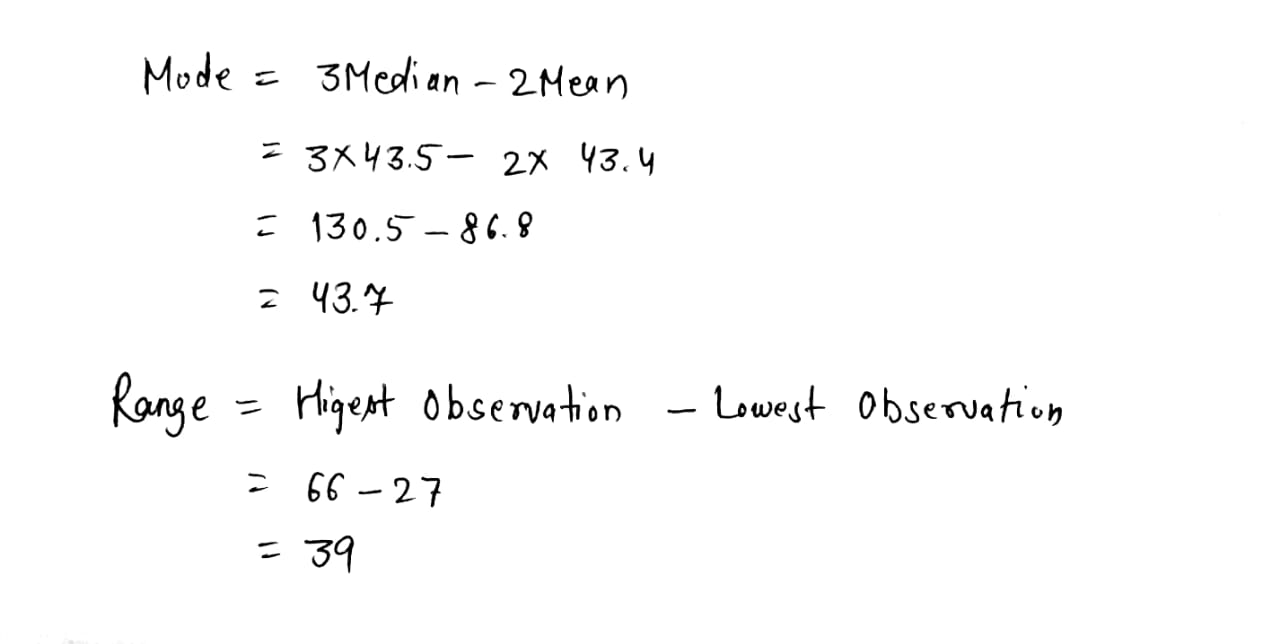 Mode = 3Median - 2Mean
= 3×43.5 - 2× 43.4
= 130.5 - 86.8
= 43.7
Range = Higest Observation - Lowest Observation
= 66 - 27
= 39